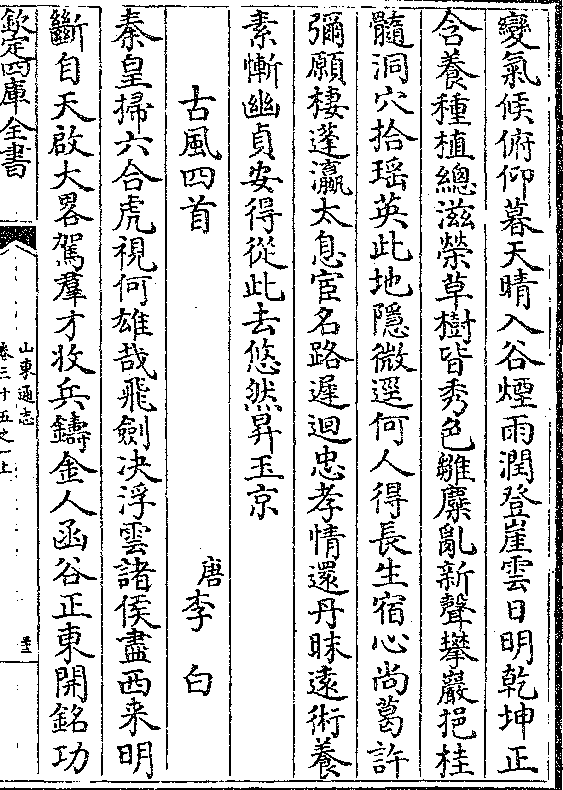 變氣候俯仰暮天晴入谷煙雨潤登崖雲日明乾坤正
含養種植總滋榮草樹皆秀色雛麋亂新聲攀巖挹桂
髓洞穴拾瑶英此地隱微逕何人得長生宿心尚葛許
彌願棲蓬瀛太息宦名路遲迴忠孝情還丹昧遠術養
素慚幽貞安得從此去悠然昇玉京
古風四首
唐李白
秦皇掃六合虎視何雄哉飛劍决浮雲諸侯盡西来明
斷自天啟大畧駕羣才收兵鑄金人函谷正東開銘功
欽定四庫全書
山東通志
卷三十五之一上